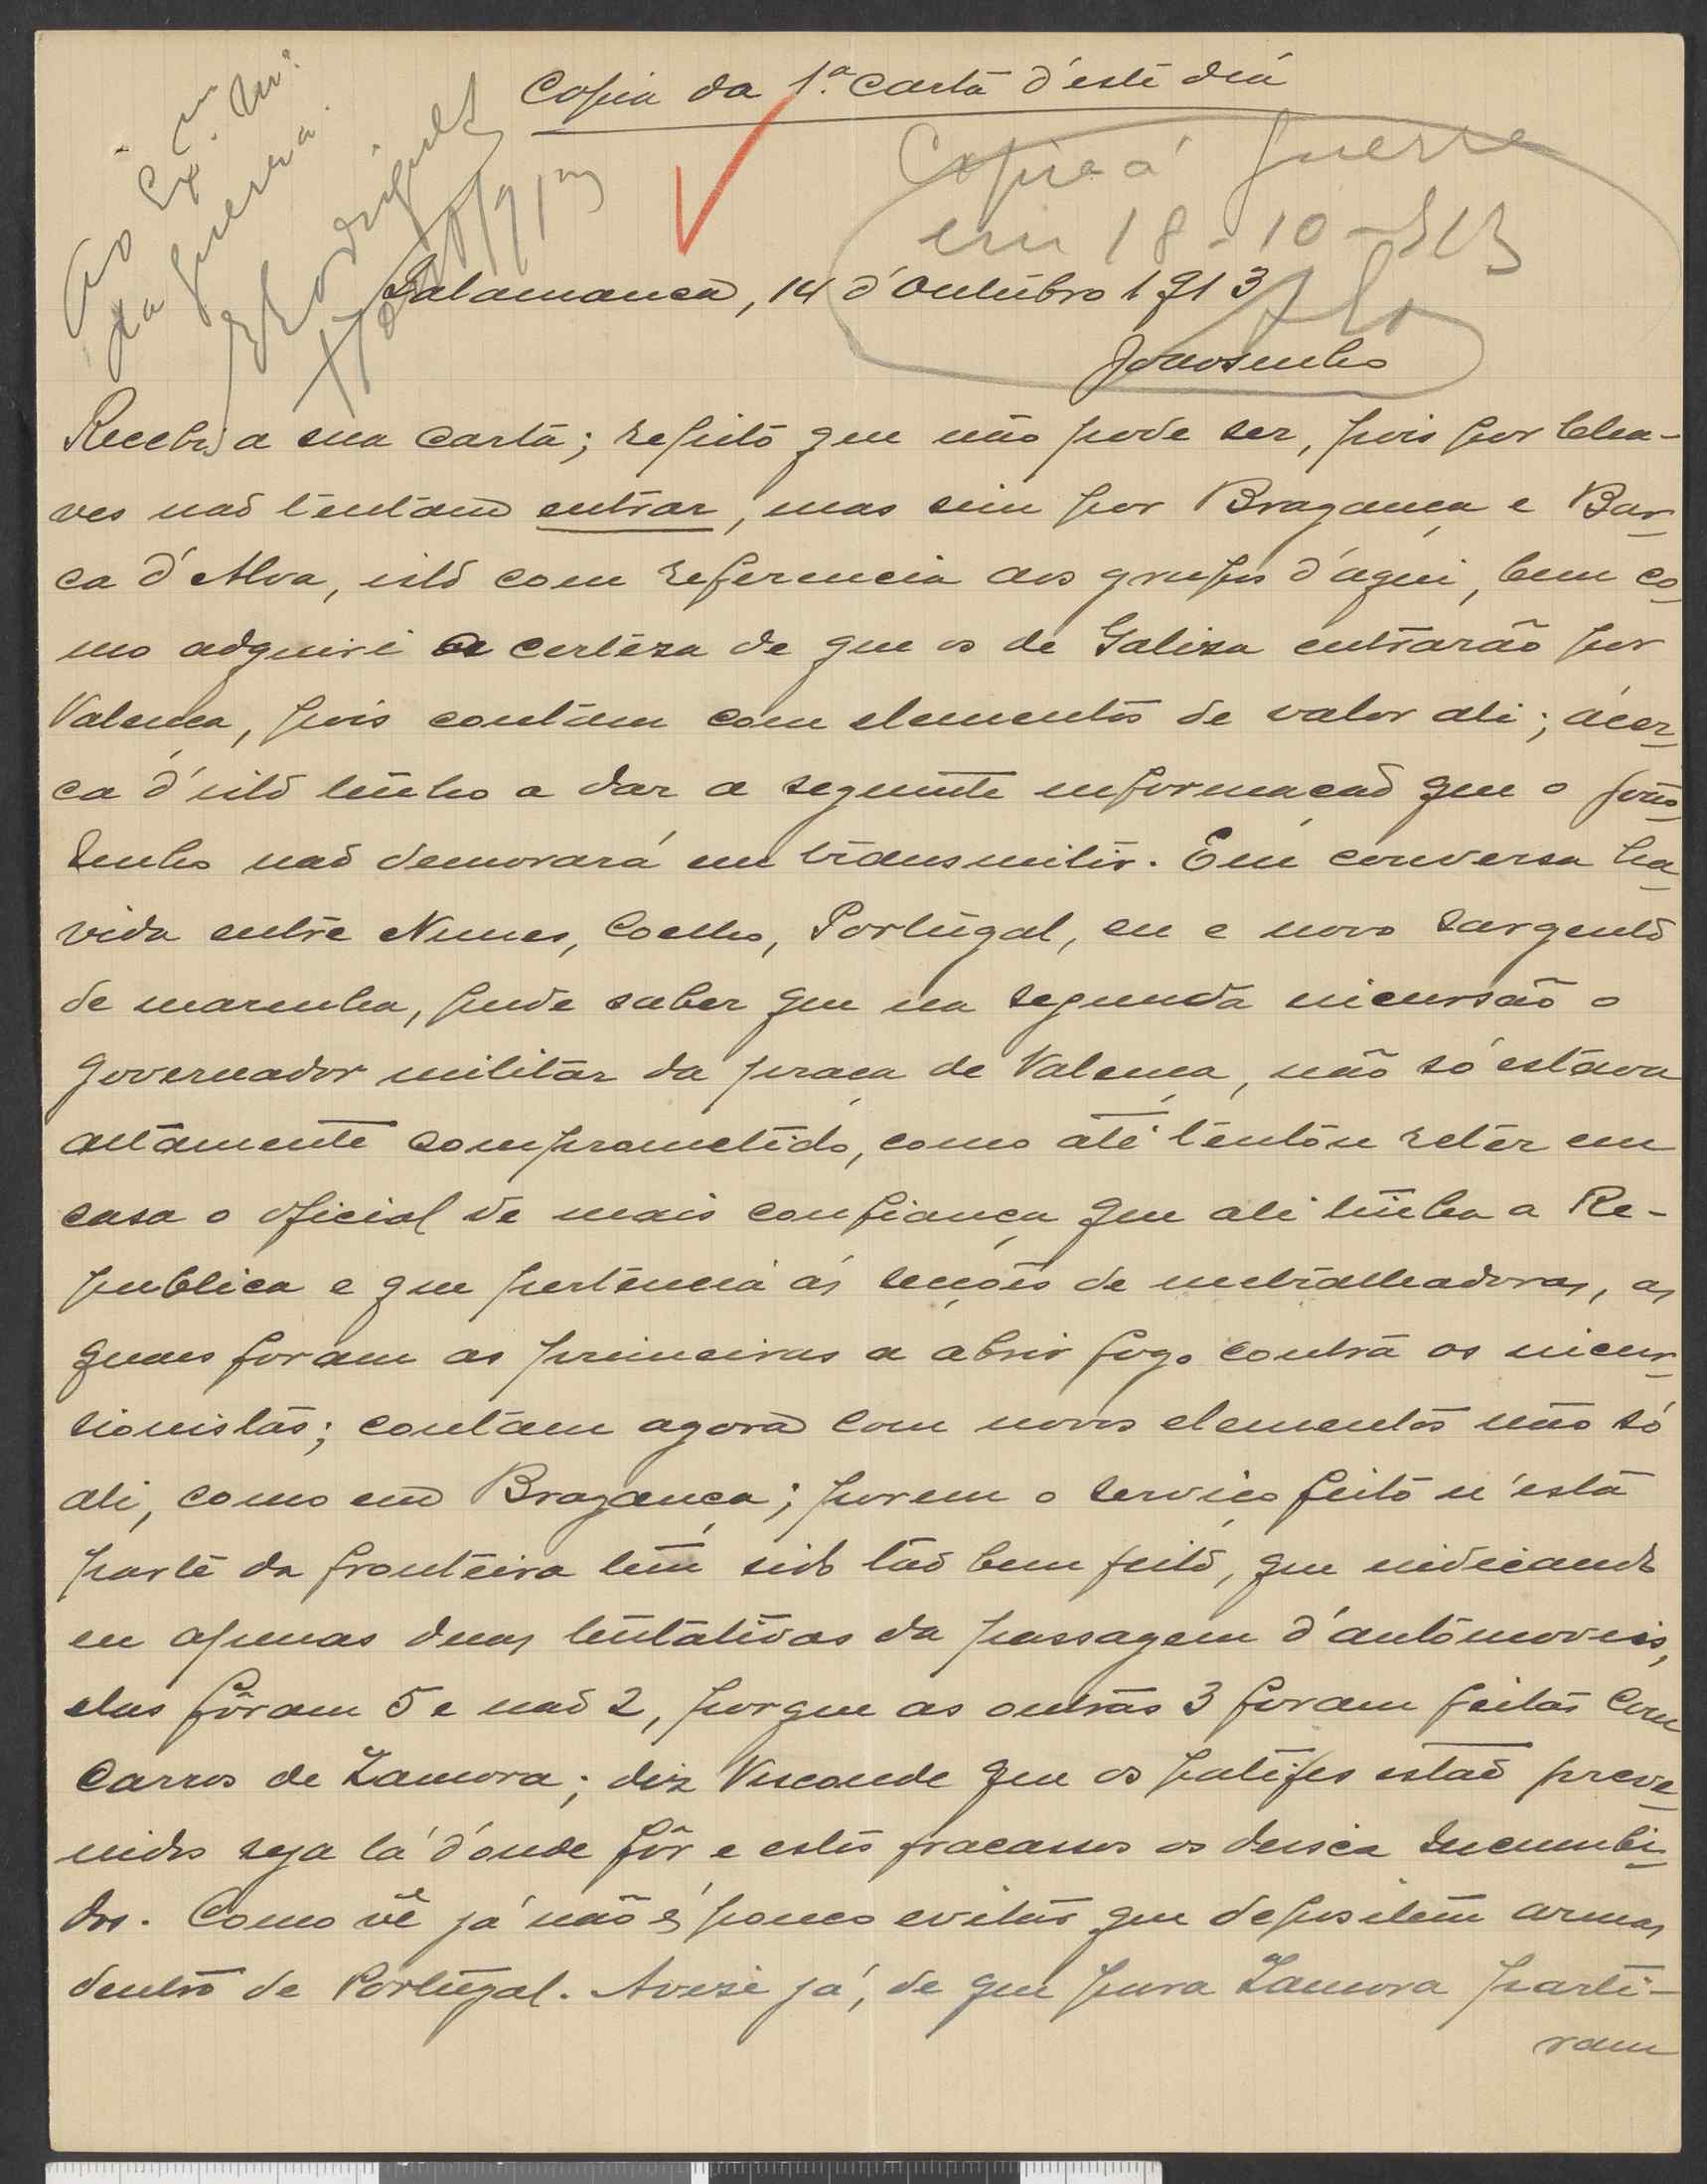 Copia da 1.ª carta d'este dia
Ao Ex.mo Snr.
da Guerra.
Rodrigues
Copia á Guerra
em 18-10-913
Salamanca, 14 d'Outubro 1913
Joãosinho
Recebi a sua carta; repito que não pode ser, pois por Cha-
ves naõ tentam entrar, mas sim por Bragança e Bar-
ca d'Alva, isto com referencia aos grupos d'aqui, bem co-
mo adquiri a certeza de que os de Galiza entrarão por
Valença, pois contam com elementos de valor ali; ácer-
ca d'isto tenho a dar a seguinte informaçaõ que o João-
sinho naõ demorará em transmitir. Em conversa ha-
vida entre Nunes, Coelho, Portugal, eu e novo sargento
de marinha, pude saber que na segunda incursão o
governador militar da praça de Valença, não só estava
altamente comprometido, como até tentou reter em
casa o oficial de mais confiança que ali tinha a Re-
publica e que pertencia ás seções de metralhadoras, as
quaes foram as primeiras a abrir fogo contra os incur-
sionistas; contam agora com novos elementos não só
ali, como em Bragança; porem o serviço feito n'esta
parte da fronteira tem sido taõ bem feito, que indicando
eu apenas duas tentativas da passagem d'automoveis,
elas fôram 5 e naõ 2, porque as outras 3 foram feitas com
carros de Zamora; diz Visconde que os patifes estaõ preve-
nidos seja lá d'onde fôr e estes fracassos os deixa sucumbi-
dos. Como vê já não é pouco evitar que depositem armas
dentro de Portugal. Avise já, de que para Zamora parti-
ram